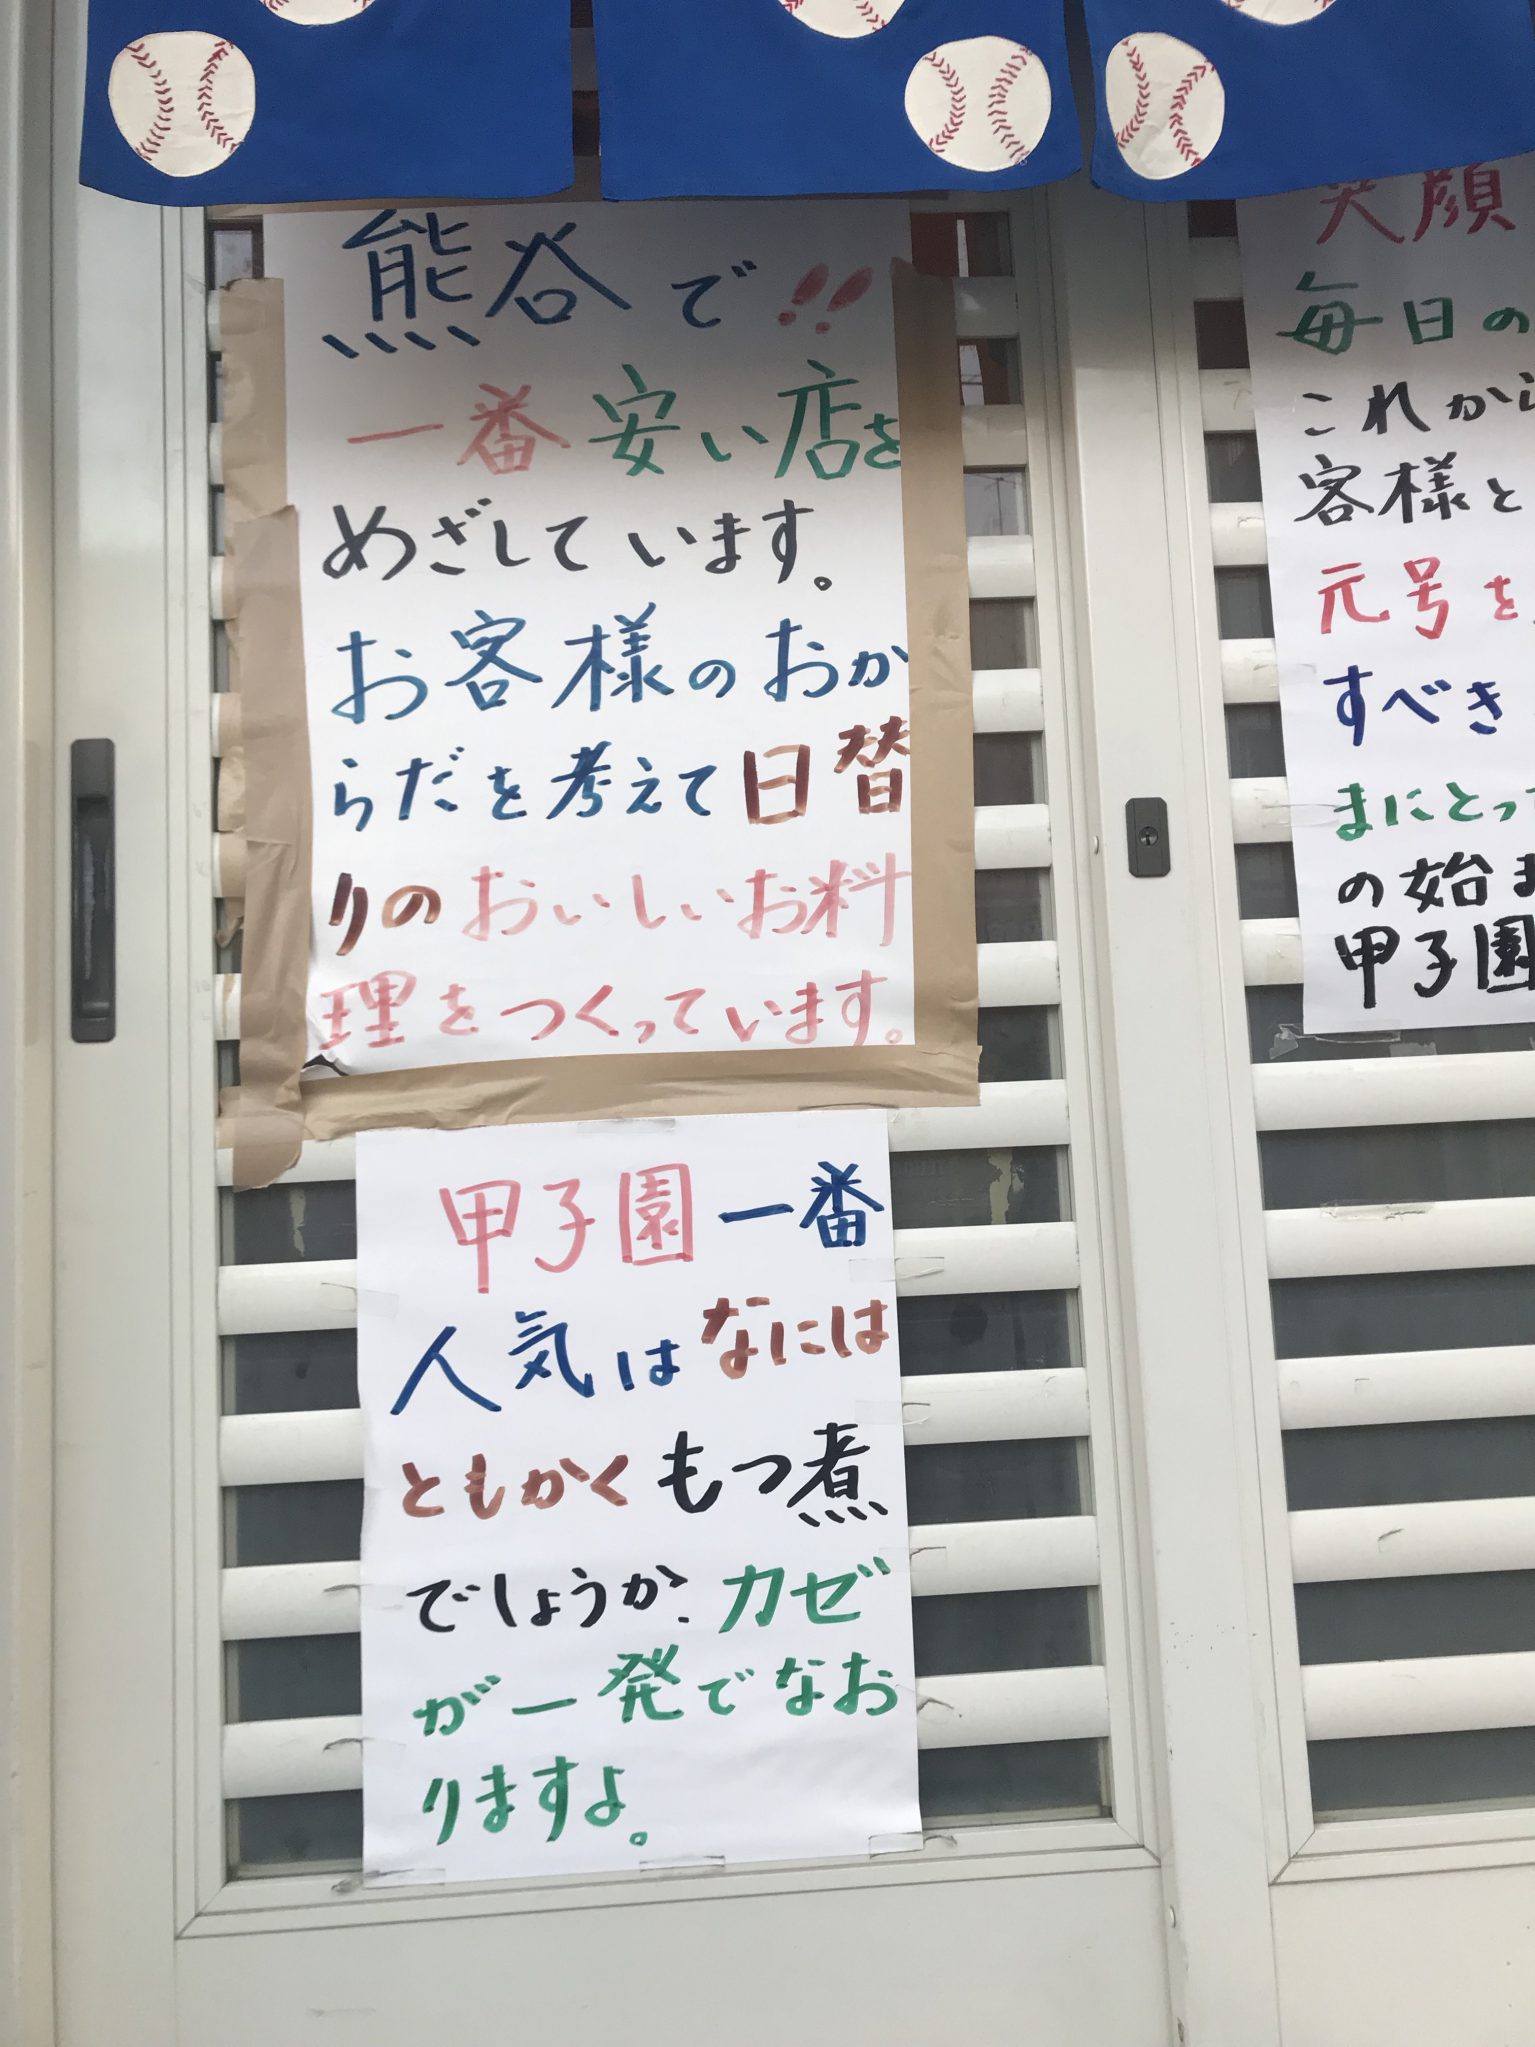 熊谷で!!
一番安い店を
めざしています。
お客様のおか
らだを考えて日替
りのおいしいお料
理をつくっています。
甲子園一番
人気はなには
ともかくもつ煮
でしょうか。カゼ
が一発でなお
りますよ。
笑顔
毎日の
これから
客様と
元号を
すべき
まにとっ
の始ま
甲子園